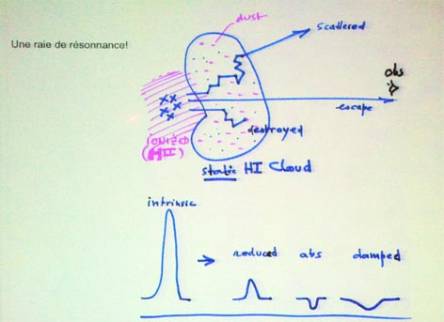 Une raie de résonnance!
dust
scattered
obs
escape
destroyed
ionized
(HII)
static HI Cloud
intrinsic
reduced abs damped